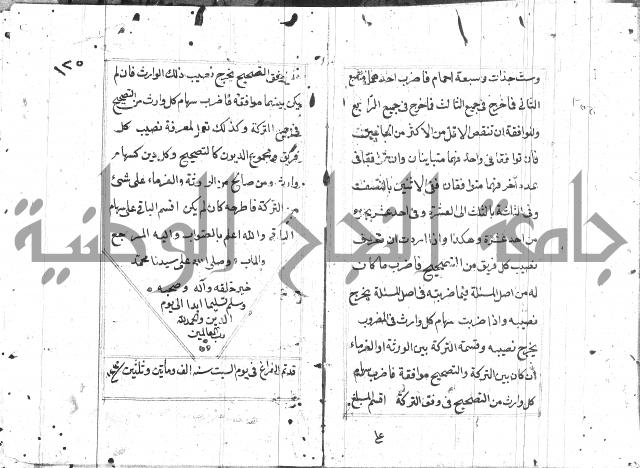 وست جدات وسبعة اعمام فاضرب احدهما بجميع
الثاني فما خرج في جميع الثالث فما خرج في جميع الرابع
والموافقة ان تنقص الاقل من الاكثر من الجانبين
فان توافقا في واحد فهما متباينان وان توافقا في
عدد آخر فهما متوافقان ففي الاثنين بالنصف
وفي الثلاثة بالثلث الى العشرة وفي احد عشر بجزء
من احد عشرة وهكذا واذا اردت ان تعرف
نصيب كل فريق من التصحيح فاضرب ما كان
له من اصل المسئلة فيما ضربته في اصل المسئلة يخرج
نصيبه واذا ضربت سهام كل وارث في المضروب
يخرج نصيبه وقسمة التركة بين الورثة او الغرماء
ان كان بين التركة والتصحيح موافقة فاضرب سهام
كل وارث من التصحيح في وفق التركة اقسم المبلغ
١٢٥
على وفق التصحيح يخرج نصيب ذلك الوارث فان لم
يكن بينهما موافقة فاضرب سهام كل وارث من التصحيح
في جميع التركة وكذلك تعمل لمعرفة نصيب كل
فريق ومجموع الديون كالتصحيح وكل دين كسهام
وارث ومن صالح من الورثة والغرماء على شئ
من التركة فاطرحه كان لم يكن اقسم الباقي على سهام
الباقي والله اعلم بالصواب واليه المرجع
والماب وصلى الله على سيدنا محمد
خير خلقه وآله وصحبه
وسلم تسليما ابدا الى يوم
الدين والحمد لله
رب العالمين
قد تم الفراغ في يوم السبت سنه الف ومايتين وثلثين
جامعة النجاح الوطنية